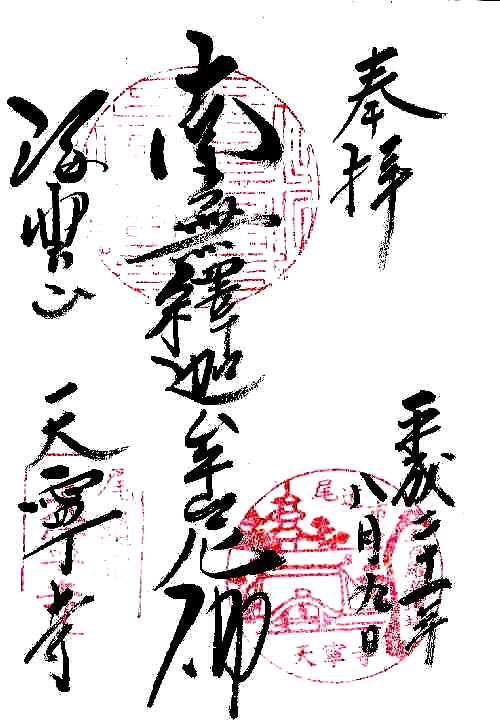 奉拝
平成二十一年
八月九日
南無釋迦牟尼佛
海雲山
天寧寺
尾道市
天寧寺